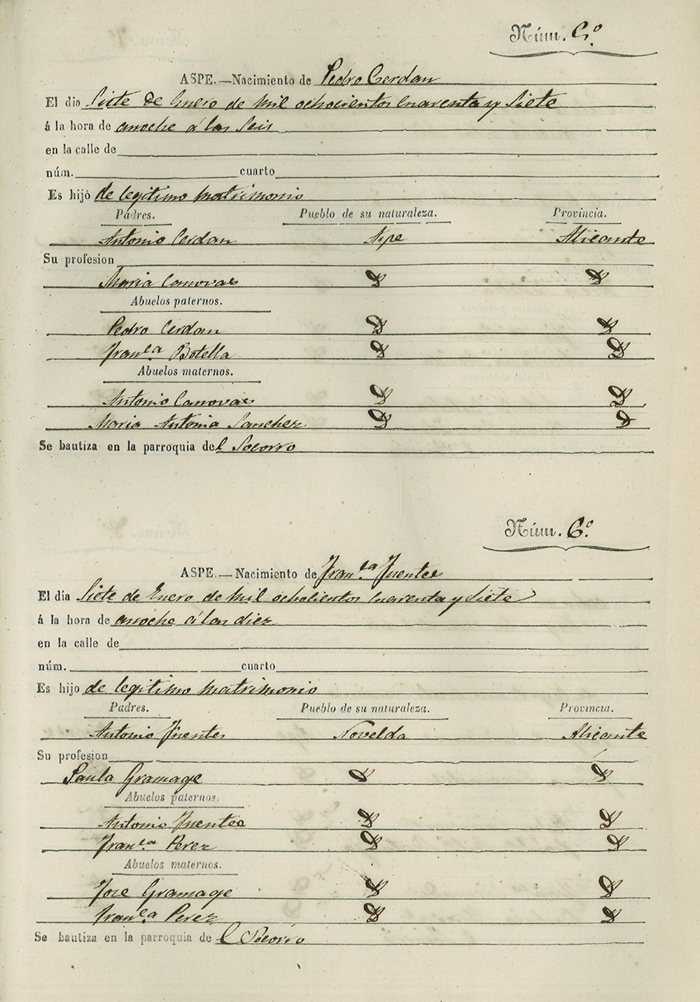 Núm. 5.º
ASPE.—Nacimiento de Pedro Cerdan
El dia Siete de Enero de mil ochocientos cuarenta y Siete
á la hora de anoche á las Seis
en la calle de
núm. cuarto
Es hijo de legitimo matrimonio
Padres. Pueblo de su naturaleza. Provincia.
Antonio Cerdan Aspe Alicante
Su profesion
Maria Canovas D D
Abuelos paternos.
Pedro Cerdan D D
Franca Botella D D
Abuelos maternos.
Antonio Canovas D D
Maria Antonia Sanchez D D
Se bautiza en la parroquia del Socorro
Núm. 6.º
ASPE.—Nacimiento de Franca Fuentes
El dia Siete de Enero de mil ochocientos cuarenta y Siete
á la hora de anoche á las diez
en la calle de
núm. cuarto
Es hijo de legitimo matrimonio
Padres. Pueblo de su naturaleza. Provincia.
Antonio Fuentes Novelda Alicante
Su profesion
Paula Gramage D D
Abuelos paternos.
Antonio Fuentes D D
Franca Perez D D
Abuelos maternos.
Jose Gramage D D
Franca Perez D D
Se bautiza en la parroquia de l Socorro